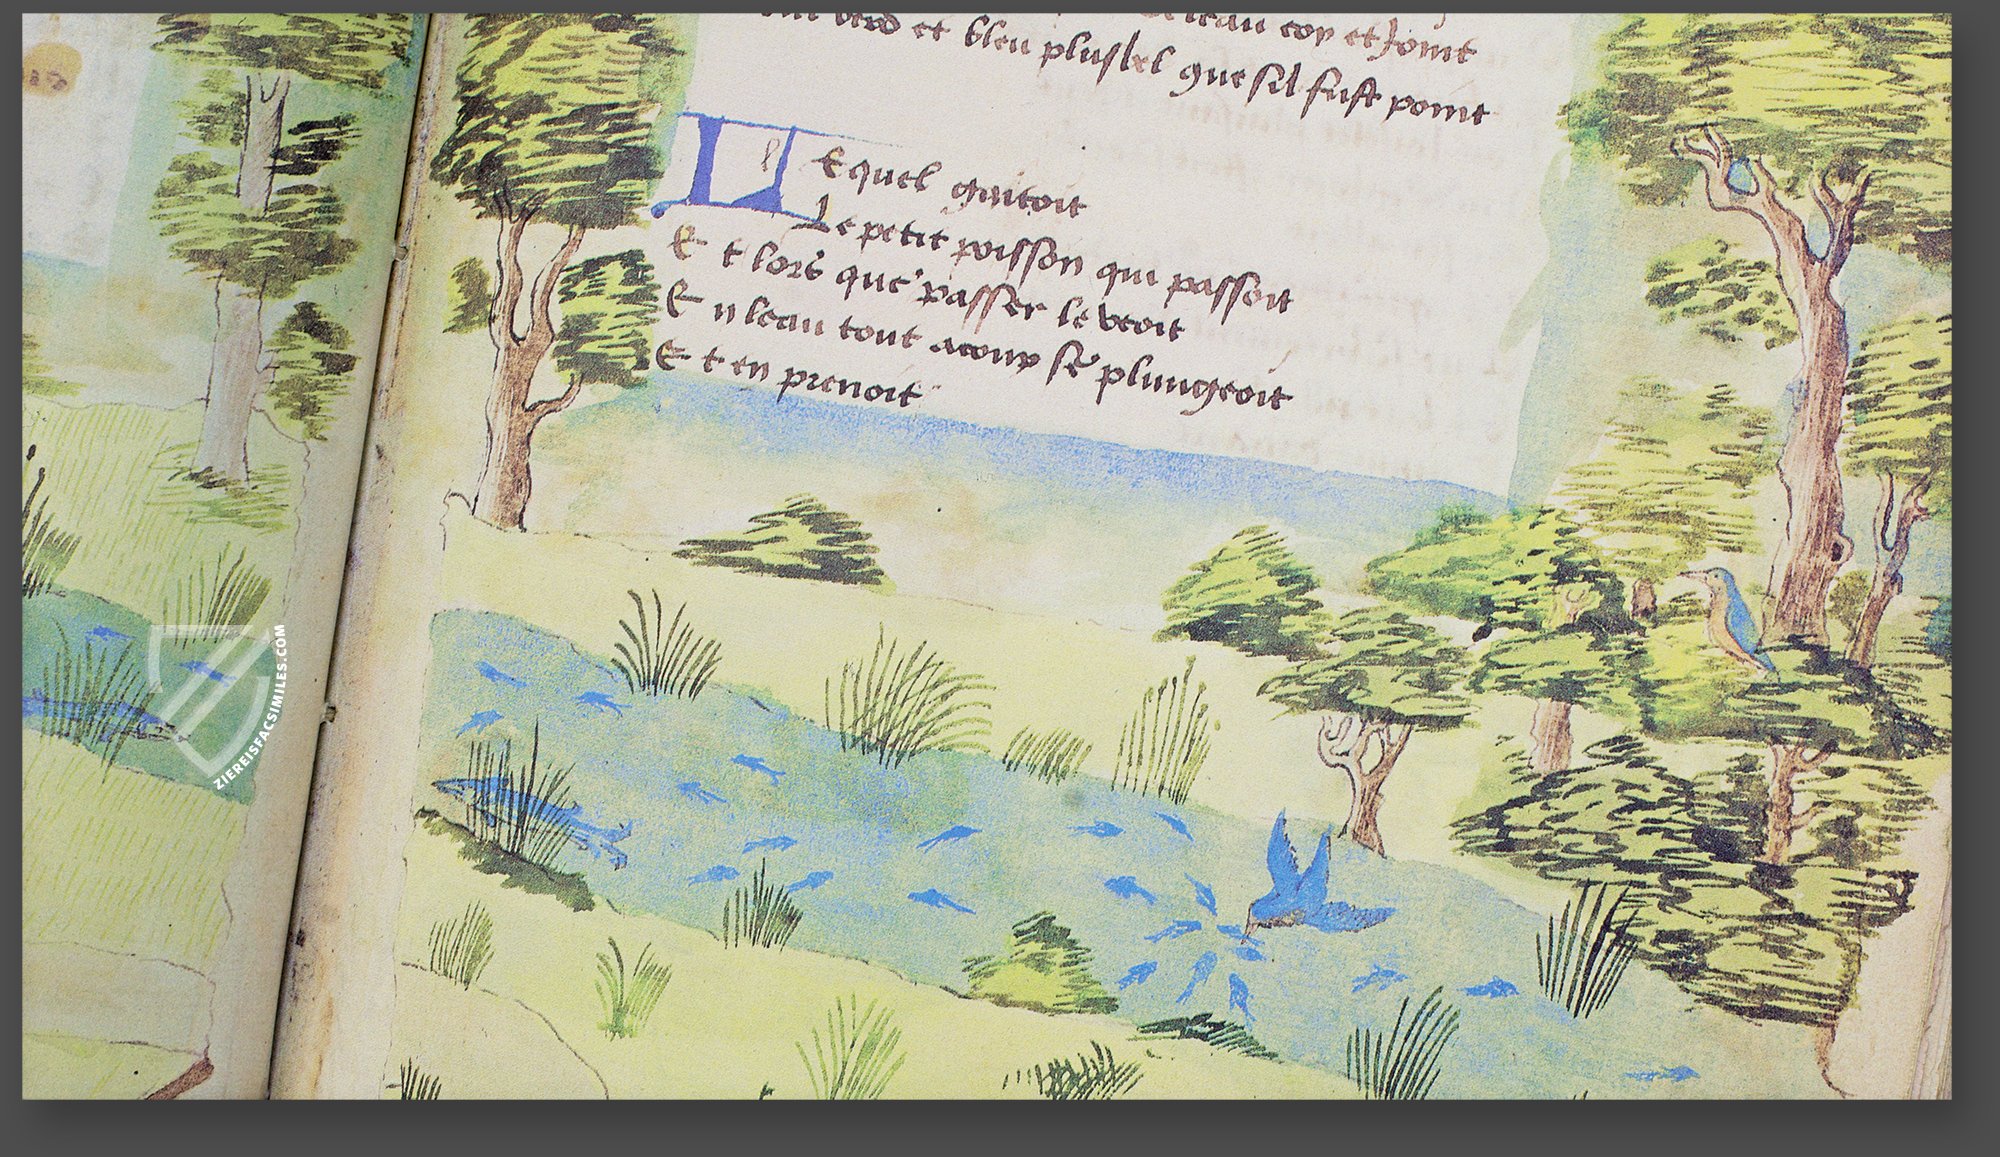 verd et bleu plus bel que sil fust point
Lequel gaitoit
Le petit poisson qui passoit
Et lors que passer le veoit
En leau tout acoup se plungeoit
Et en prenoit
ZIEREISFACSIMILES.COM